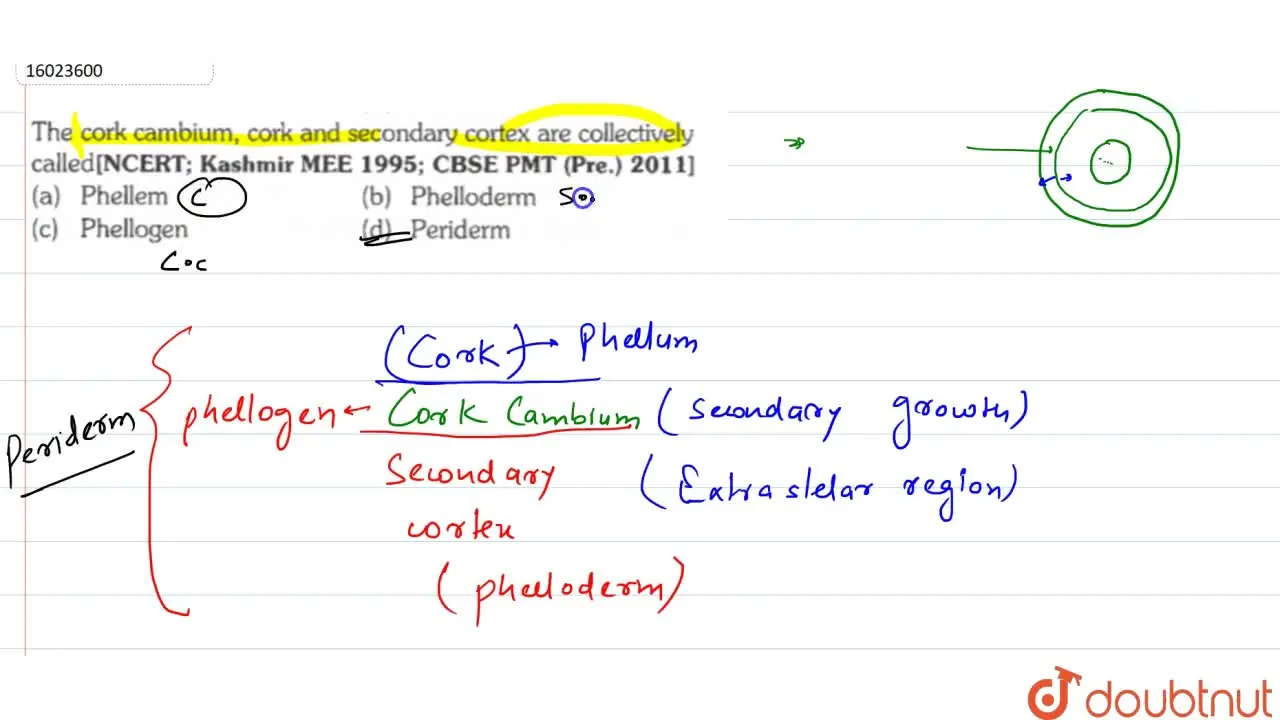 16023600
The cork cambium, cork and secondary cortex are collectively
called[NCERT; Kashmir MEE 1995; CBSE PMT (Pre.) 2011]
(a) Phellem C (b) Phelloderm
(c) Phellogen (d) Periderm
C.C
(Cork) → Phellum
Periderm { phellogen ← Cork Cambium (Secondary growth)
Secondary (Extrastelar region)
cortex
(phelloderm)
doubtnut